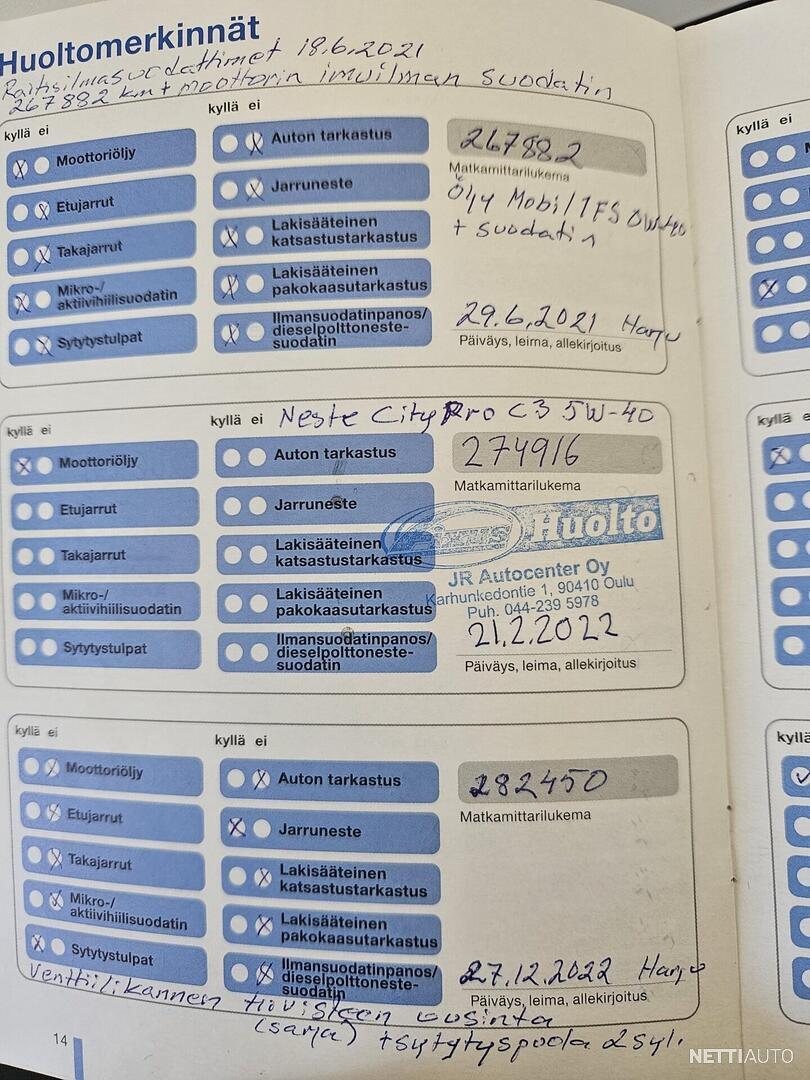 Huoltomerkinnät
Raitisilmasuodattimet 18.6.2021
267882 km + moottorin imuilman suodatin
kyllä ei
Moottoriöljy
Etujarrut
Takajarrut
Mikro-/
aktiivihiilisuodatin
Sytytystulpat
kyllä ei
Auton tarkastus
Jarruneste
Lakisääteinen
katsastustarkastus
Lakisääteinen
pakokaasutarkastus
Ilmansuodatinpanos/
dieselpolttoneste-
suodatin
267882
Matkamittarilukema
Öljy Mobil 1 FS 0W-40
+ suodatin
29.6.2021 Harju
Päiväys, leima, allekirjoitus
kyllä ei
Moottoriöljy
Etujarrut
Takajarrut
Mikro-/
aktiivihiilisuodatin
Sytytystulpat
kyllä ei
Neste City Pro C3 5W-40
Auton tarkastus
Jarruneste
Lakisääteinen
katsastustarkastus
Lakisääteinen
pakokaasutarkastus
Ilmansuodatinpanos/
dieselpolttoneste-
suodatin
274916
Matkamittarilukema
Huolto
JR Autocenter Oy
Karhunkedontie 1, 90410 Oulu
Puh. 044-239 5978
21.2.2022
Päiväys, leima, allekirjoitus
kyllä ei
Moottoriöljy
Etujarrut
Takajarrut
Mikro-/
aktiivihiilisuodatin
Sytytystulpat
kyllä ei
Auton tarkastus
Jarruneste
Lakisääteinen
katsastustarkastus
Lakisääteinen
pakokaasutarkastus
Ilmansuodatinpanos/
dieselpolttoneste-
suodatin
282450
Matkamittarilukema
27.12.2022 Harju
Päiväys, leima, allekirjoitus
Venttiilikannen tiivisteen uusinta
(sarja) + sytytyspuola 2 syl.
14
kyllä ei
kyllä e
kyllä
NETTIAUTO